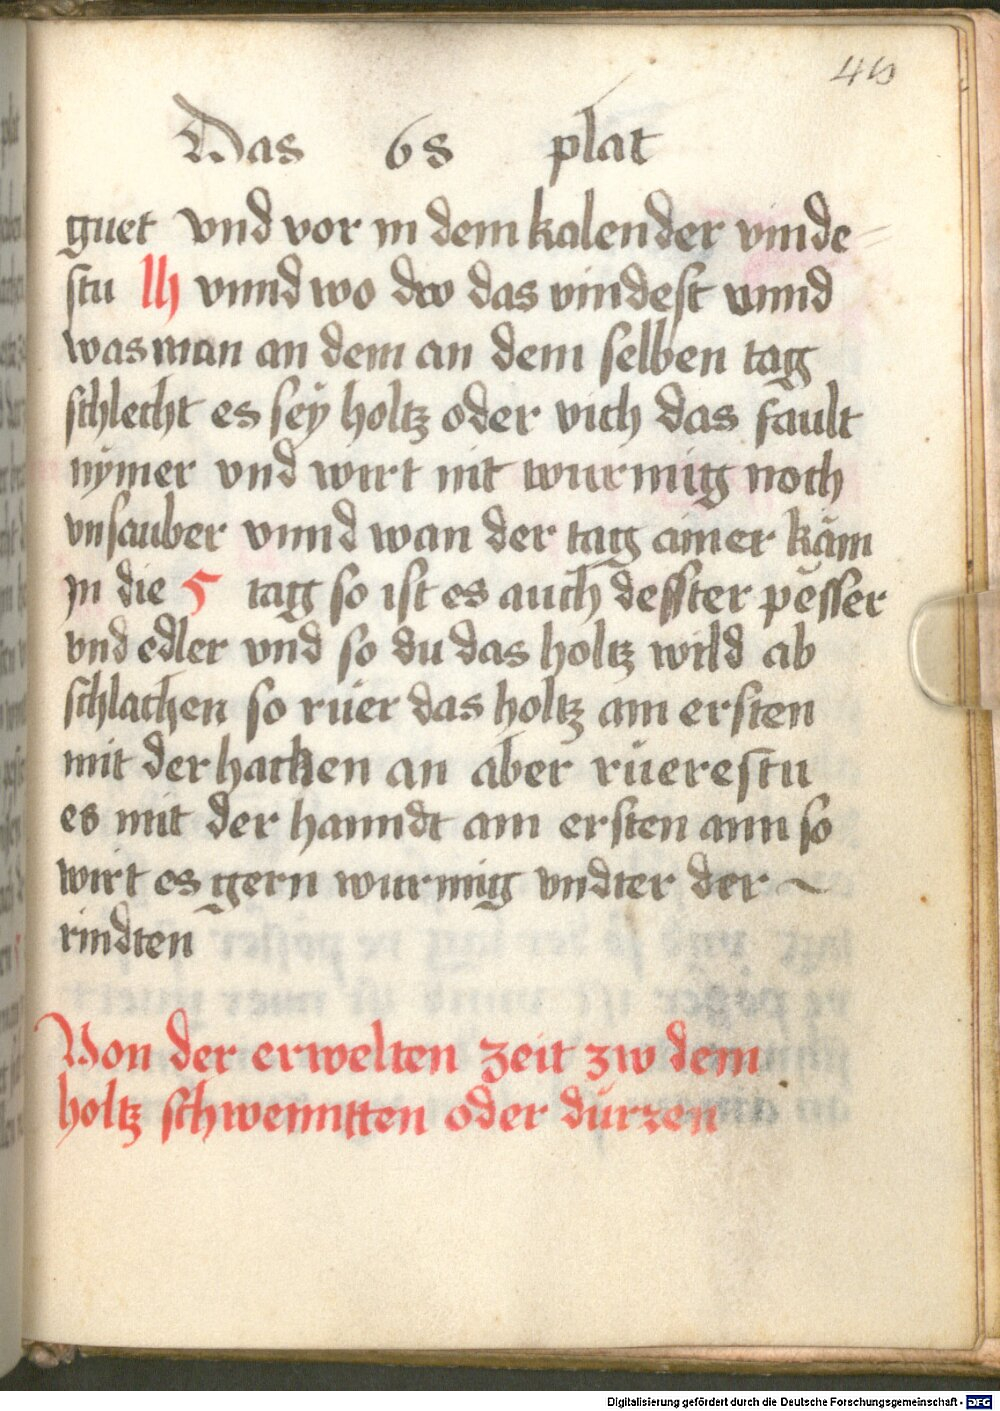 46
Das 68 plat
guet vnd vor in dem kalender vinde=
stu lh vnnd wo dw das vindest vnnd
was man an dem an dem selben tag
schlecht es seÿ holtz oder vich das fault
nÿmer vnd wirt nit wurmig noch
vnsauber vnnd wan der tag ainer käm
in die 5 tag so ist es auch desster pesser
vnd edler vnd so du das holtz wild ab
schlachen so rüer das holtz am ersten
mit der hacken an aber rüerestu
es mit der hanndt am ersten ann so
wirt es gern wurmig vndter der ~
rindten
Von der erwelten zeit zw dem
holtz schwenntten oder dürren
Digitalisierung gefördert durch die Deutsche Forschungsgemeinschaft - DFG